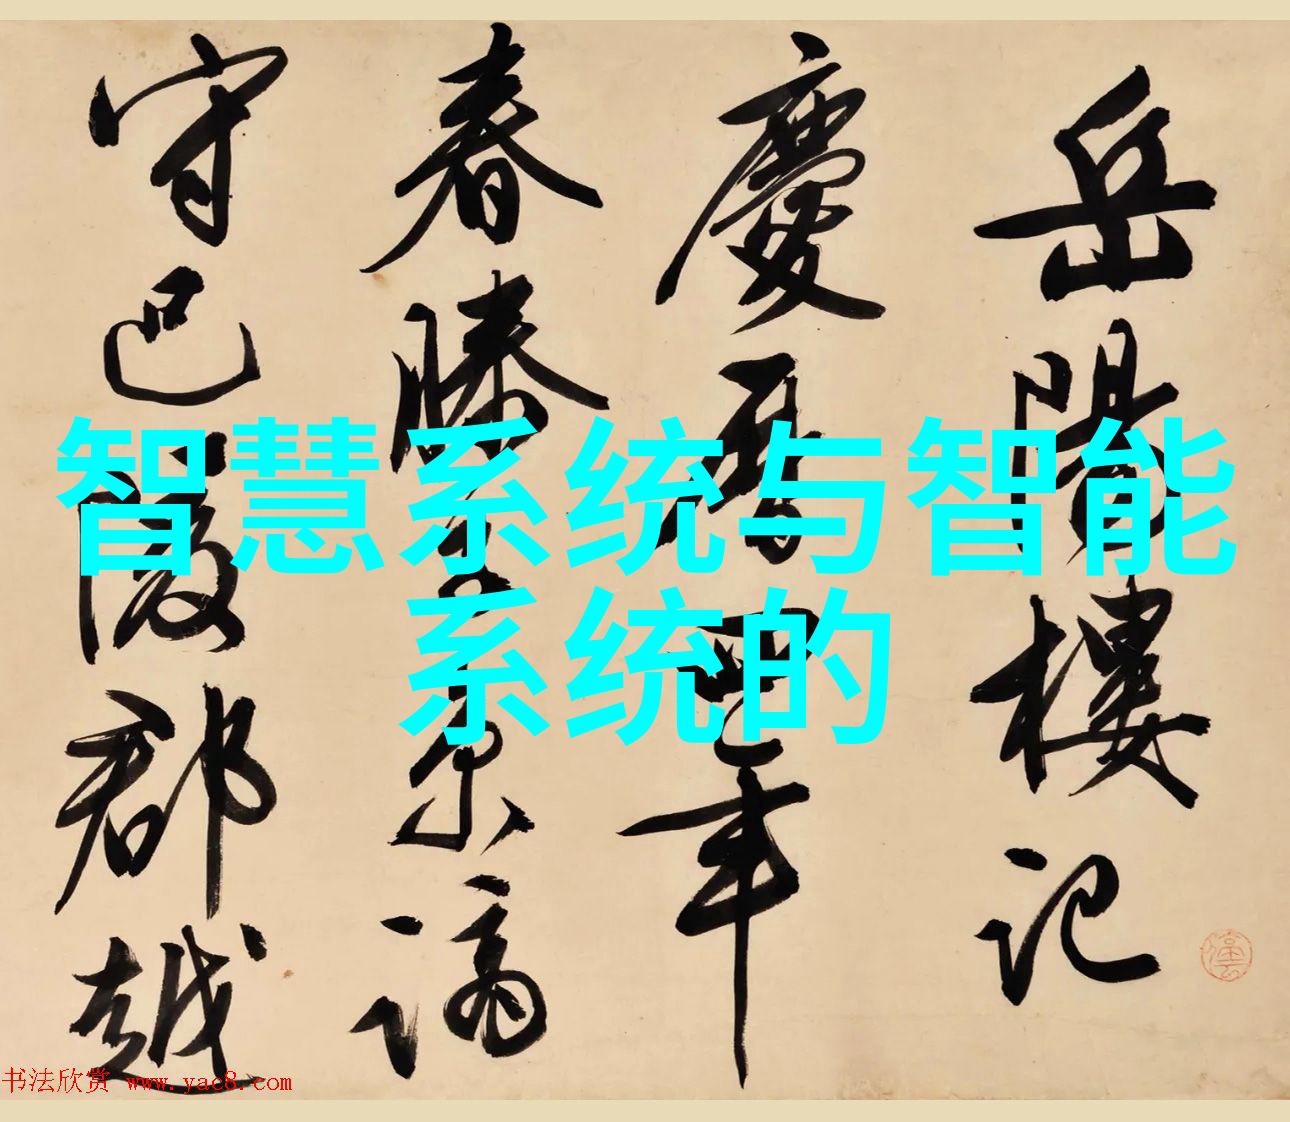 岳陽樓記
慶曆四年
春滕子京謫
守巴陵郡越
智慧系统与智能
系统的
书法欣赏 www.yac8.com